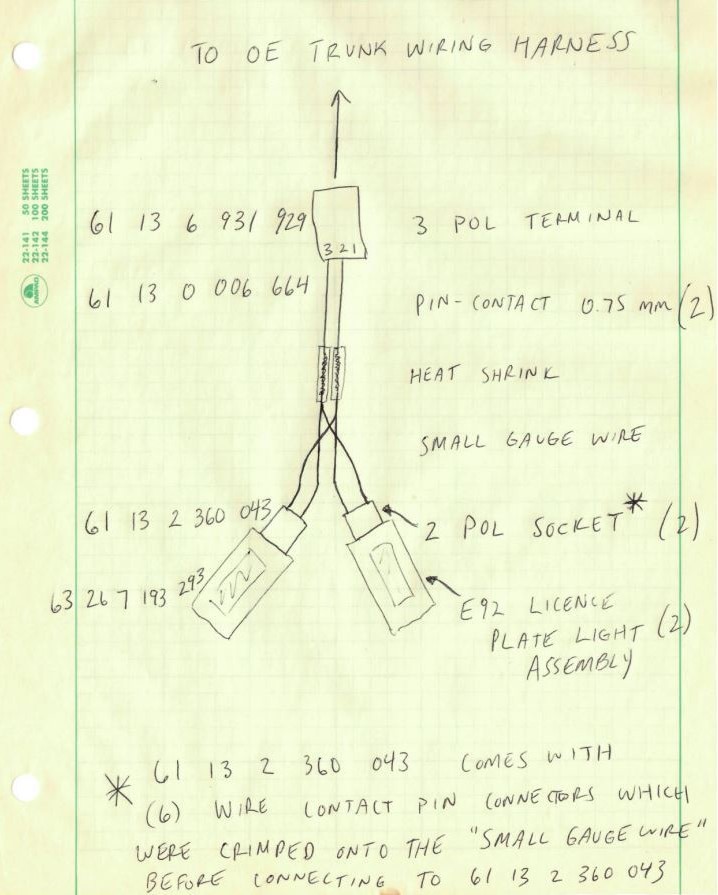 TO OE TRUNK WIRING HARNESS
22-141 50 SHEETS
22-142 100 SHEETS
22-144 200 SHEETS
61 13 6 931 929
3 2 1
3 POL TERMINAL
61 13 0 006 664
PIN-CONTACT 0.75 MM (2)
HEAT SHRINK
SMALL GAUGE WIRE
61 13 2 360 043
2 POL SOCKET* (2)
63 26 7 193 293
E92 LICENCE
PLATE LIGHT (2)
ASSEMBLY
* 61 13 2 360 043 COMES WITH
(6) WIRE CONTACT PIN CONNECTORS WHICH
WERE CRIMPED ONTO THE "SMALL GAUGE WIRE"
BEFORE CONNECTING TO 61 13 2 360 043